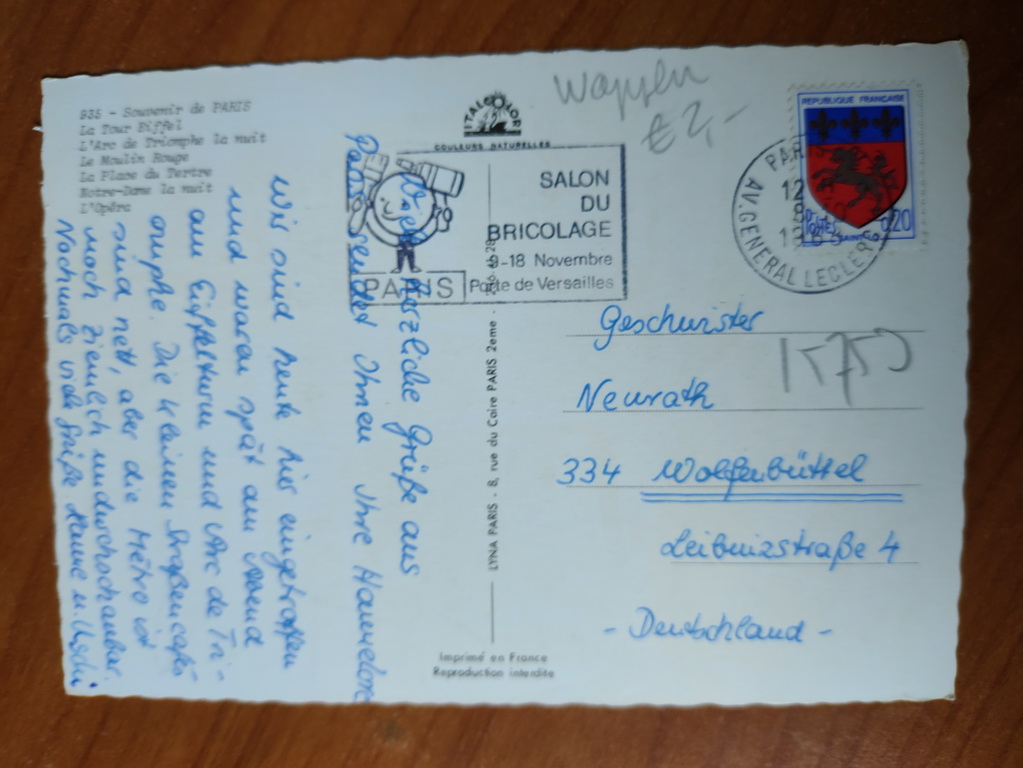 935 - Souvenir de PARIS
La Tour Eiffel
L'Arc de Triomphe la nuit
Le Moulin Rouge
La Place du Tertre
Notre-Dame la nuit
L'Opéra
ITALCOLOR
COULEURS NATURELLES
Wappen
€ 2,-
REPUBLIQUE FRANÇAISE
0,20
POSTES
PARIS
AV. GENERAL LECLERC
SALON
DU
BRICOLAGE
9-18 Novembre
Porte de Versailles
PARIS
herzliche Grüße aus
Paris sendet Ihnen Ihre Hannelore
Wir sind heute hier eingetroffen
und waren spät am Abend
am Eiffelturm und Arc de Tri-
omphe. Die kleinen Straßencafés
sind nett, aber die Métro ist
noch ziemlich undurchschaubar.
Nochmals viele Grüße Hanne u. Uschi
LYNA PARIS - 8, rue du Caire PARIS 2eme -
Imprimé en France
Reproduction interdite
Geschwister
Neurath
15750
334 Wolfenbüttel
Leibnizstraße 4
- Deutschland -